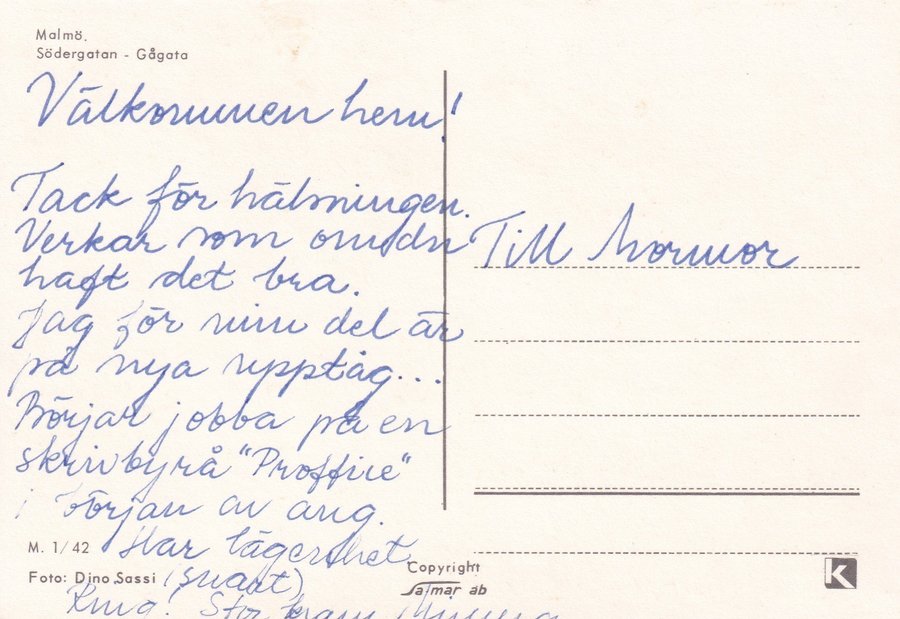 Malmö.
Södergatan - Gågata
Välkommen hem!
Tack för hälsningen.
Verkar som om du
haft det bra.
Jag för min del är
på nya upptåg...
Börjar jobba på en
skrivbyrå "Proffice"
i början av aug.
Har lägenhet
(snart)
Ring! Stor kram
Till Mormor
M. 1/42
Foto: Dino Sassi
Copyright
Satmar ab
K